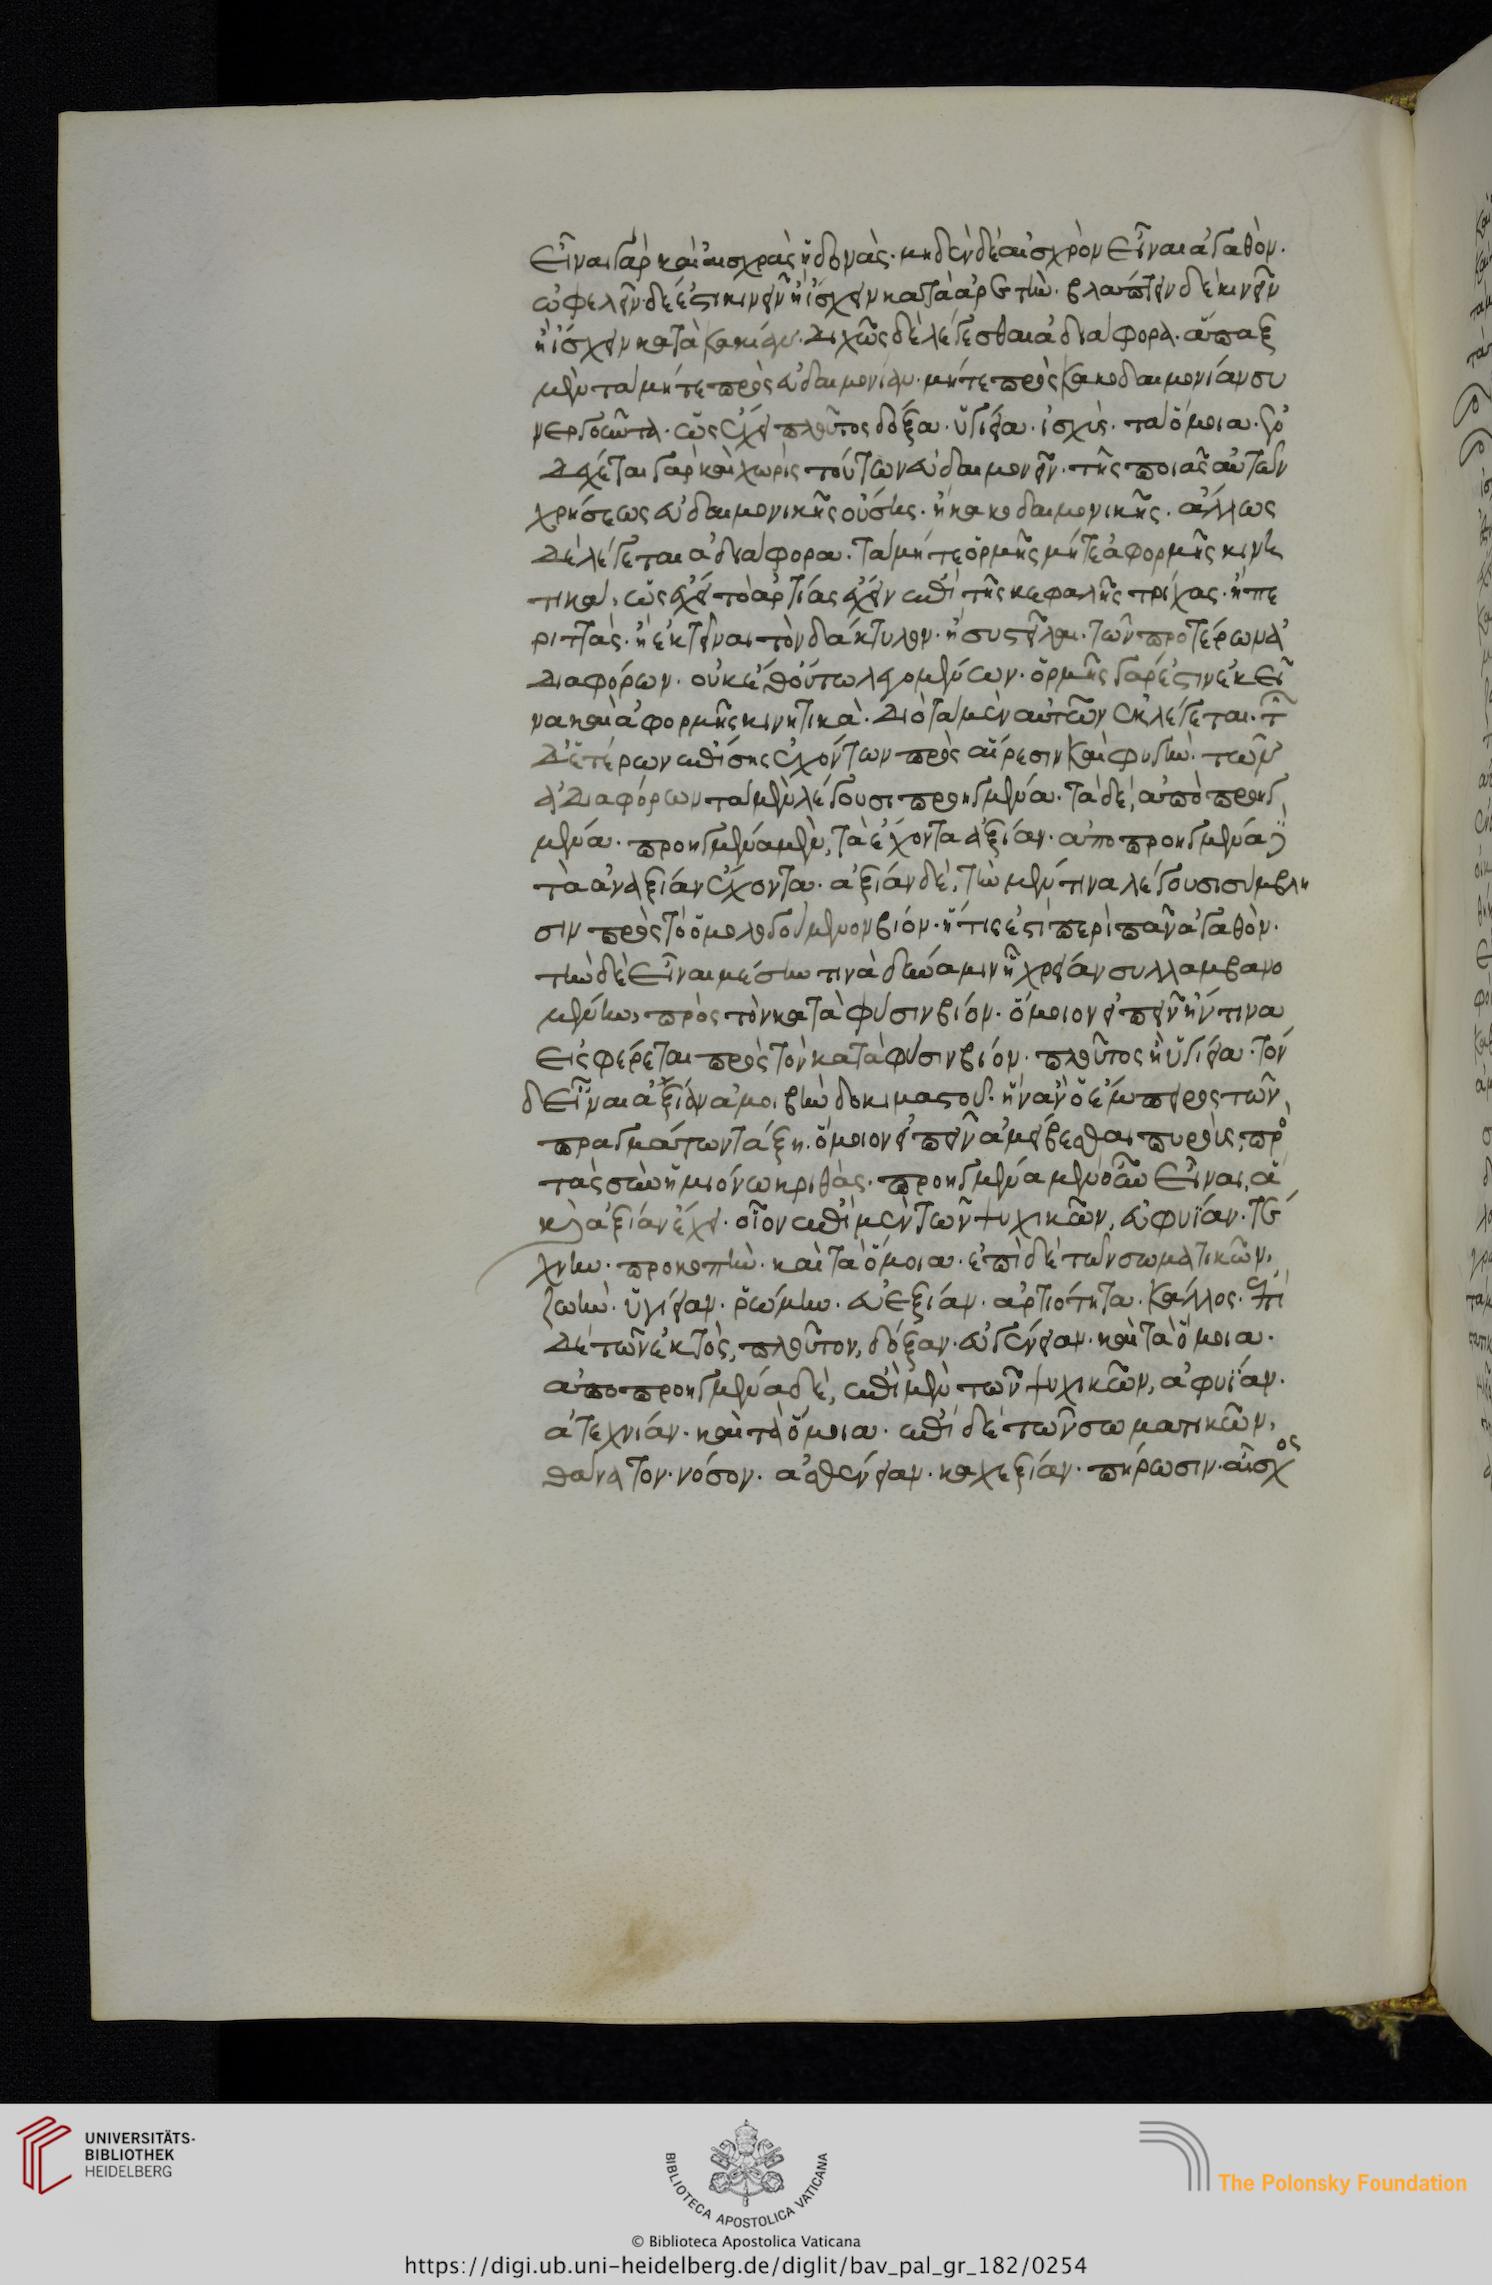 εἶναι γὰρ καὶ αἰσχρὰς ἡδονὰς· μηδὲν δὲ αἰσχρὸν εἶναι ἀγαθὸν·
ὠφελεῖν δέ ἐστι κινεῖν ἢ ἴσχειν κατὰ ἀρετὴν· βλάπτειν δὲ κινεῖν
ἢ ἴσχειν κατὰ κακίαν. διχῶς δὲ λέγεσθαι ἀδιάφορα. ἅπαξ
μὲν τὰ μήτε πρὸς εὐδαιμονίαν· μήτε πρὸς κακοδαιμονίαν συ
νεργοῦντα. ὡς ἔχει πλοῦτος δόξα· ὑγίεια· ἰσχύς· τὰ ὅμοια·
δέχεται γὰρ καὶ χωρὶς τούτων εὐδαιμονεῖν· τῆς ποιᾶς αὐτῶν
χρήσεως εὐδαιμονικῆς οὔσης· ἢ κακοδαιμονικῆς· ἄλλως
δὲ λέγεται ἀδιάφορα· τὰ μήτε ὁρμῆς μήτε ἀφορμῆς κινη
τικά, ὡς ἔχει τὸ ἀρτίας ἔχειν ἐπὶ τῆς κεφαλῆς τρίχας· ἢ πε
ριττὰς· ἢ ἐκτεῖναι τὸν δάκτυλον· ἢ συστεῖλαι· τῶν προτέρων ἀ
διαφόρων· οὐκέθ' οὕτω λεγομένων· ὁρμῆς γάρ ἐστιν ἐκεῖ
να καὶ ἀφορμῆς κινητικὰ· διὸ τὰ μὲν αὐτῶν ἐκλέγεται· τῶν
δ' ἑτέρων ἐπίσης ἐχόντων πρὸς αἵρεσιν καὶ φυγὴν· τῶν
ἀδιαφόρων τὰ μὲν λέγουσι προηγμένα· τὰ δὲ, ἀποπροηγ
μένα· προηγμένα μὲν, τὰ ἔχοντα ἀξίαν· ἀποπροηγμένα
τὰ ἀναξίαν ἔχοντα· ἀξίαν δὲ, τὴν μέν τινα λέγουσι σύμβλη
σιν πρὸς τὸ ὁμολογούμενον βίον· ἥτις ἐστὶ περὶ πᾶν ἀγαθὸν·
τὴν δὲ εἶναι μέσην τινὰ δύναμιν ἢ χρείαν συλλαμβανο
μένην, πρὸς τὸν κατὰ φύσιν βίον· ὅμοιον εἰπεῖν ἥντινα
εἰσφέρεται πρὸς τὸν κατὰ φύσιν βίον· πλοῦτος ἢ ὑγίεια· τὸν
δ' εἶναι ἀξίαν ἀμοιβὴν δοκιμαστοῦ· ἣν ἂν ὁ ἔμπειρος τῶν
πραγμάτων τάξῃ· ὅμοιον εἰπεῖν ἀμείβεσθαι πυροὺς, πρὸς
τὰς σὺν ἡμιόνῳ κριθὰς· προηγμένα μὲν οὖν εἶναι, ἃ
καὶ ἀξίαν ἔχει· οἷον ἐπὶ μὲν τῶν ψυχικῶν, εὐφυΐαν· τέ
χνην· προκοπὴν· καὶ τὰ ὅμοια· ἐπὶ δὲ τῶν σωματικῶν,
ζωὴν· ὑγίειαν· ῥώμην· εὐεξίαν· ἀρτιότητα· κάλλος· ἐπὶ
δὲ τῶν ἐκτὸς, πλοῦτον, δόξαν· εὐγένειαν· καὶ τὰ ὅμοια·
ἀποπροηγμένα δὲ, ἐπὶ μὲν τῶν ψυχικῶν, ἀφυΐαν·
ἀτεχνίαν· καὶ τὰ ὅμοια· ἐπὶ δὲ τῶν σωματικῶν,
θάνατον· νόσον· ἀσθένειαν· καχεξίαν· πήρωσιν· αἶσχος
UNIVERSITÄTS-
BIBLIOTHEK
HEIDELBERG
BIBLIOTECA APOSTOLICA VATICANA
© Biblioteca Apostolica Vaticana
The Polonsky Foundation
https://digi.ub.uni-heidelberg.de/diglit/bav_pal_gr_182/0254